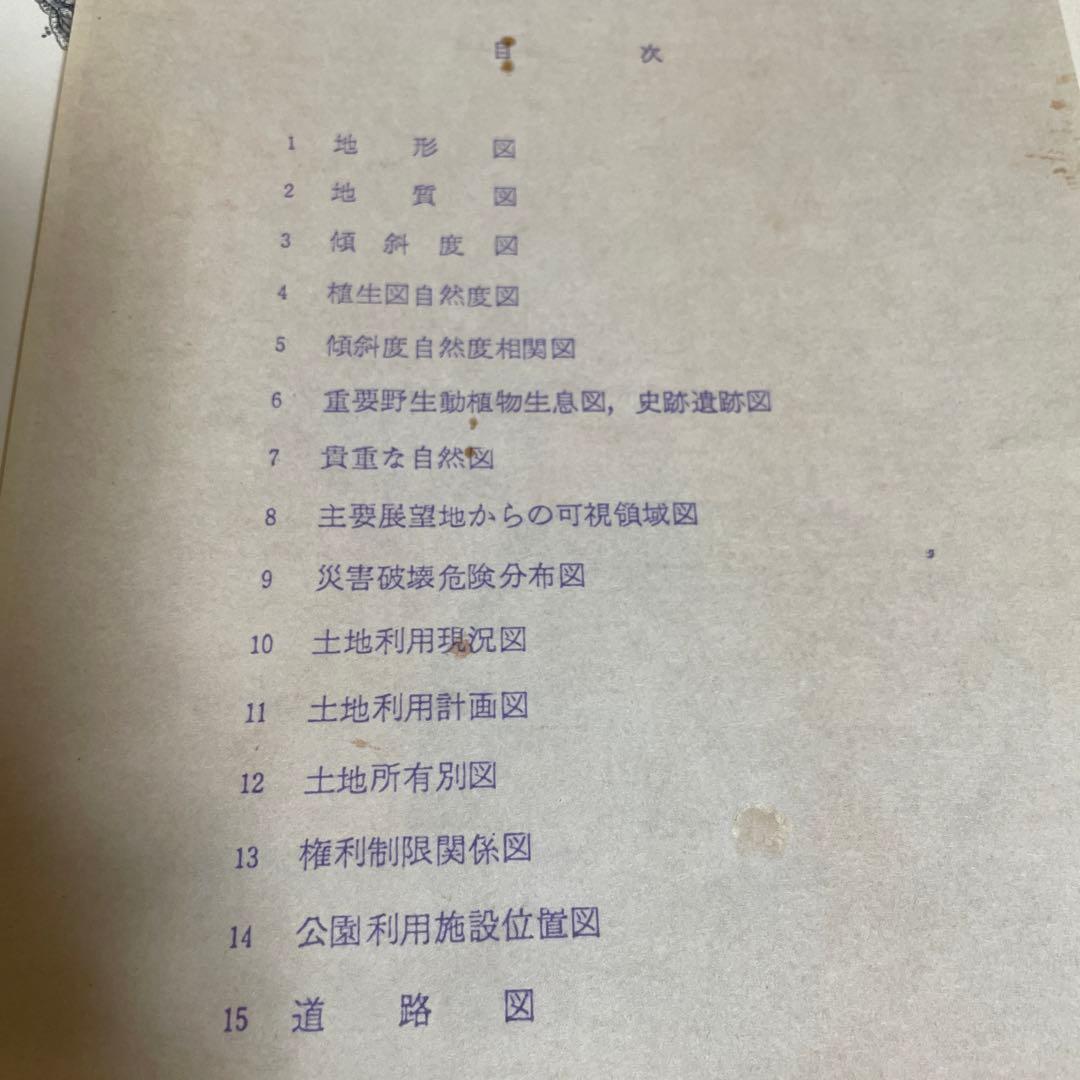 目 次
1 地形図
2 地質図
3 傾斜度図
4 植生図自然度図
5 傾斜度自然度相関図
6 重要野生動植物生息図，史跡遺跡図
7 貴重な自然図
8 主要展望地からの可視領域図
9 災害破壊危険分布図
10 土地利用現況図
11 土地利用計画図
12 土地所有別図
13 権利制限関係図
14 公園利用施設位置図
15 道路図